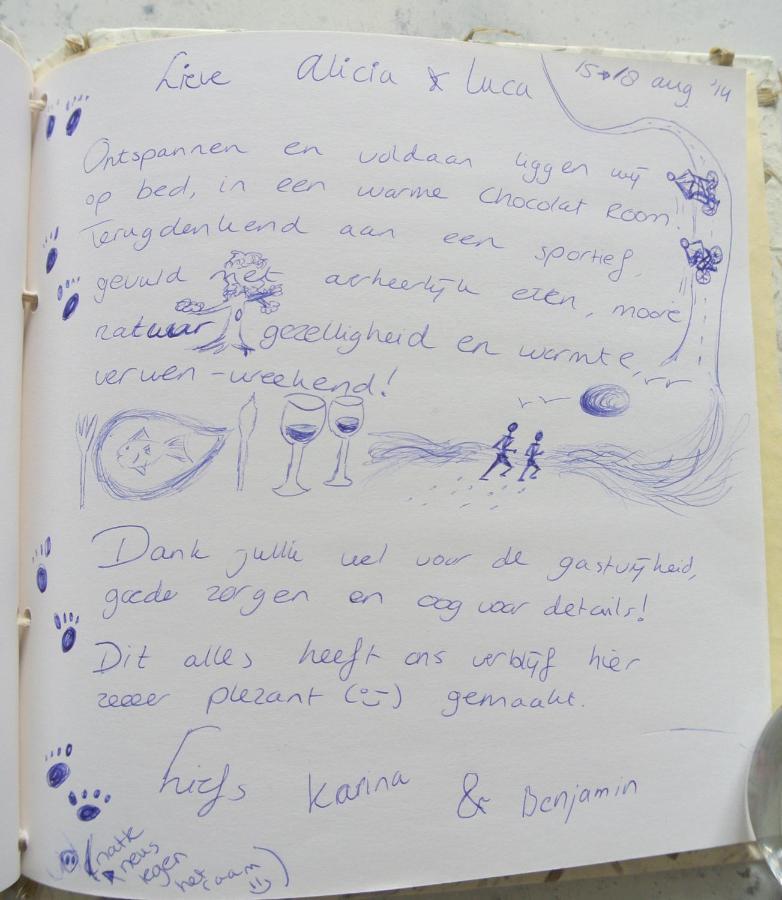 Lieve Alicia & Luca
15→18 aug '14
Ontspannen en voldaan liggen wij
op bed, in een warme Chocolat Room.
Terugdenkend aan een sportief,
gevuld met overheerlijk eten, mooie
natuur, gezelligheid en warmte,
verwen-weekend!
Dank jullie wel voor de gastvrijheid,
goede zorgen en oog voor details!
Dit alles heeft ons verblijf hier
zeeer plezant (☺) gemaakt.
Liefs Karina & Benjamin
(natte
neus
tegen
het raam ☺)